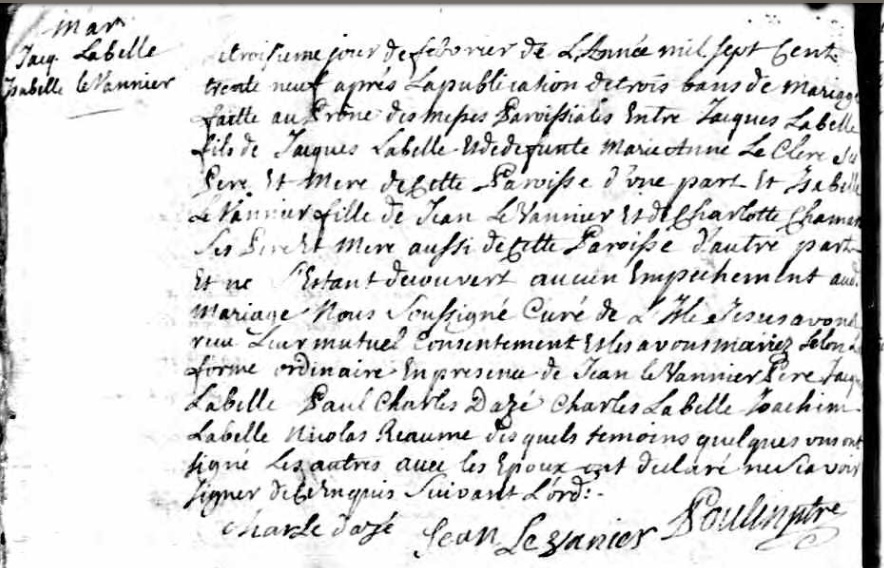 Mar
Jacq. Labelle
Isabelle le Vannier
troisieme jour de febvrier de L'Année mil sept Cent
trente neuf aprés Lapublication de trois bans de Mariage
faitte au Prône des messes Paroissiales Entre Jacques Labelle
fils de Jacques Labelle Et de defunte Marie Anne Le Clerc Ses
Pere Et Mere de Cette Paroisse d'une part Et Isabelle
Le Vannier fille de Jean Le Vannier Et de Charlotte
Ses Pere Et Mere aussi de Cette Paroisse d'autre part
Et ne S'Estant decouvert aucun Empechement aud.
Mariage Nous Soussigné Curé de L'Isle Jesus avons
receu Leur mutuel Consentement Et les avons mariez Selon La
forme ordinaire En presence de Jean le Vannier Pere Jacq
Labelle Paul Charles Dazé Charles Labelle Joachim
Labelle Nicolas Reaume desquels temoins quelques uns ont
signé Les autres avec les Epoux ont declaré ne Scavoir
signer de ce Enquis Suivant L'ord:
charle dazé Jean Le vanier Poulin ptre